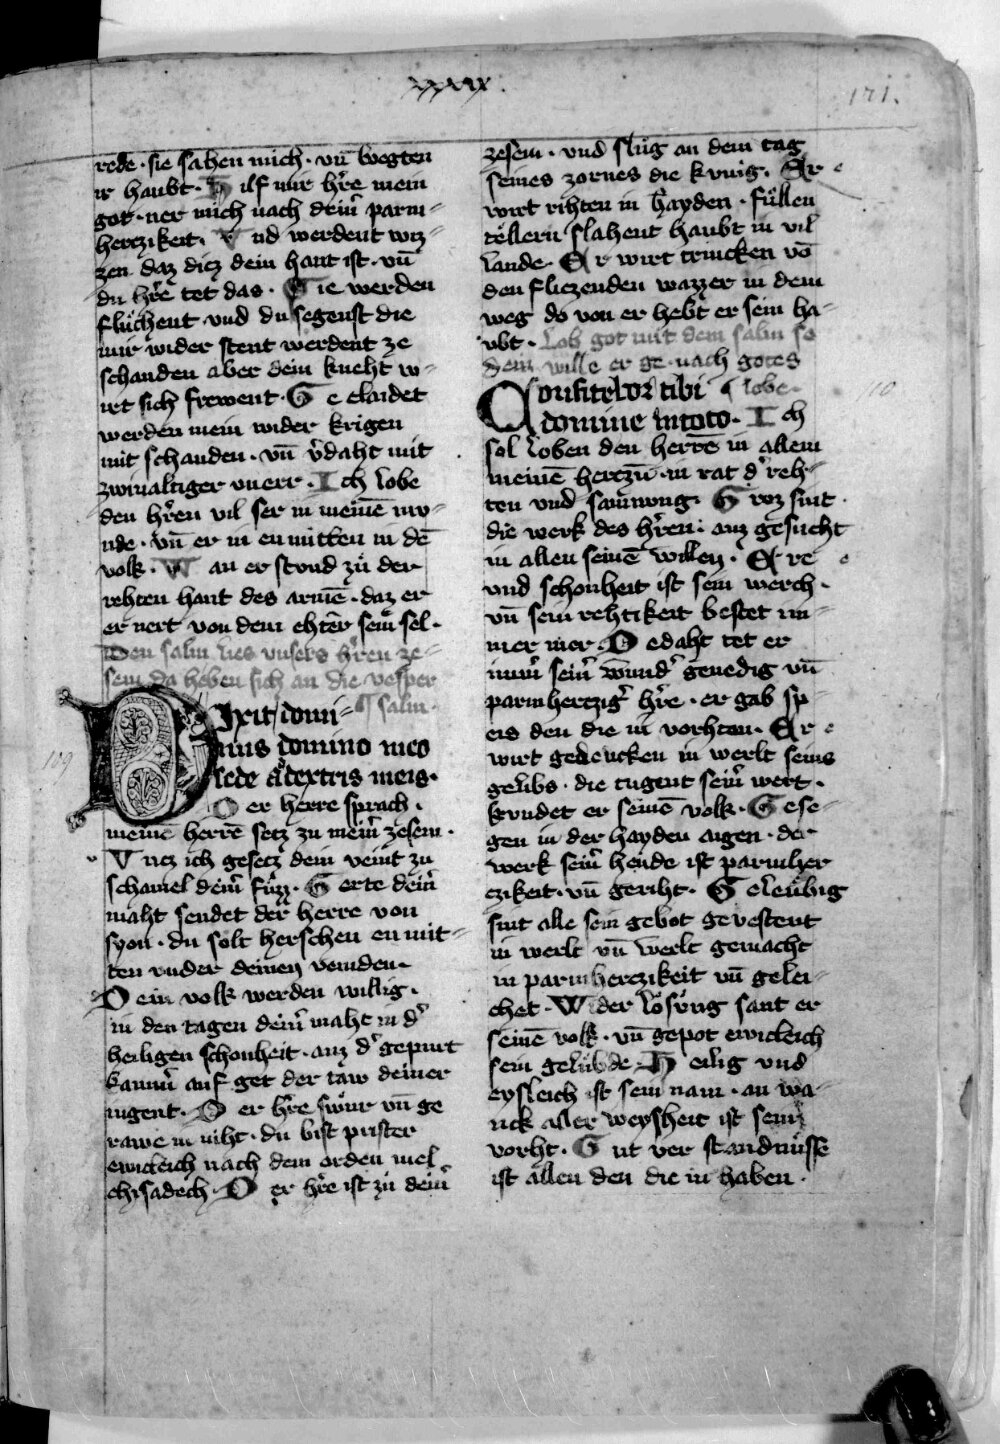 xxxxx.
171.
rede · sie sahen mich · vn̄ wegten
ir haubt · Hilf mir hr̄e mein
got · ner mich nach dein̄ parm-
herczikeit · Vnd werdent wiz-
zen daz dicz dein hant ist · vn̄
du hr̄e tet das · Sie werden
fluͤchent vnd du segenst die
mir wider stent werdent ze
schanden aber dein kneht w-
irt sich frewent · Ge claidet
werden mein wider krigen
mit schanden · vn̄ v̄daht mit
zwiualtiger vnerr · Ich lobe
den hr̄en vil ser in meinē mu-
nde · vn̄ er in enmitten in dē
volk · Wan er stvnd zuͤ der
rehten hant des armē · daz er
er nert von dem ehter sein sel ·
Den salm lies vnsers hr̄en ze-
sem da heben sich an die vesper
¶ salm
Dixit domi-
nus domino meo
sede a dextris meis ·
109
Der herre sprach ·
meinē herrē setz zu mein̄ zesem ·
Vncz ich gesecz dein veint zu
schamel dein̄ fuͤzz · Gerte dein̄
maht sendet der herre von
syon · du solt herschen enmit-
ten vnder deinen veinden ·
Dein volk werden willig ·
in den tagen dein̄ maht in d̕
heiligen schonheit · auz d̕ gepurt
kamm̄ auf get der taw deiner
iugent · Der hr̄e swuͤr vn̄ ge
rawe in niht · du bist prister
ewicleich nach dem orden mel
chisadech · Der hr̄e ist zuͤ dein̄
zesem · vnd sluͤg an dem tag
seines zornes die kvnig · Er
wirt rihten in hayden · fuͤllen
tellern slahent haubt in vil
lande · Er wirt trincken vō
den fliezenden wazzer in dem
weg do von er hebt er sein ha-
vbt · Lob got mit dem salm so
dein wille er ge nach gotes
¶ lobe ·
Confitebor tibi
domine in toto · Ich
110
sol loben den herrē in allem
meinē herczn̄ · in rat d̕ reh-
ten vnd samnvng · Groz sint
die werk des hr̄en · auz gesucht
in allen seinē willen · Ere
vnd schonheit ist sein werch ·
vn̄ sein rehtikeit bestet im-
mer mer · Gedaht tet er
sein̄ wund̕ genedig vn̄
parmhertzig̕ hr̄e · er gab sp-
eis den die in vorhten · Er
wirt gedencken in werlt seins
geluͤbs · die tugent sein̄ werk ·
kvndet er seinē volk · Gese-
gen in der hayden augen · der
werk sein̄ hende ist parmher
czikeit · vn̄ geriht · Geleubig
sint alle sein gebot gevestent
in werlt vn̄ werlt gemacht
in parmherczikeit vn̄ gelei-
chet · Wider loͤsvng sant er
seinē volk · vn̄ gepot ewicleich
sein geluͤbde · Heilig vnd
eysleich ist sein nam · an va-
nck aller weysheit ist sein
vorht · Gut ver standnuͤsse
ist allen den die in haben ·